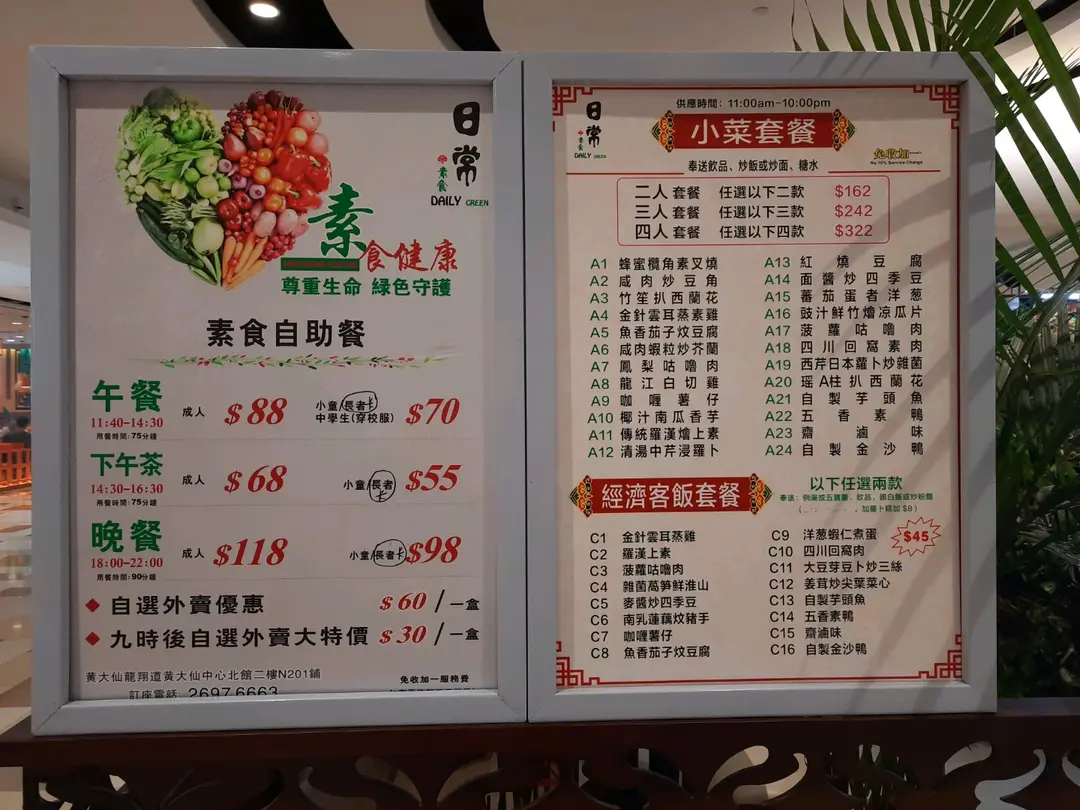 日常
素食
DAILY GREEN
素食健康
尊重生命 綠色守護
素食自助餐
午餐
11:40-14:30
用餐時間:75分鐘
成人 $88
小童/長者卡
中學生(穿校服) $70
下午茶
14:30-16:30
用餐時間:75分鐘
成人 $68
小童/長者卡 $55
晚餐
18:00-22:00
用餐時間:90分鐘
成人 $118
小童/長者卡 $98
◆ 自選外賣優惠 $60 / 一盒
◆ 九時後自選外賣大特價 $30 / 一盒
黄大仙龍翔道黄大仙中心北館二樓N201鋪
訂座電話 2697 6663
免收加一服務費
日常
素食
DAILY GREEN
供應時間: 11:00am-10:00pm
小菜套餐
免收加一
No 10% Service Charge
奉送飲品、炒飯或炒面、糖水
二人 套餐 任選以下二款 $162
三人 套餐 任選以下三款 $242
四人 套餐 任選以下四款 $322
A1 蜂蜜欖角素叉燒
A2 咸肉炒豆角
A3 竹笙扒西蘭花
A4 金針雲耳蒸素雞
A5 魚香茄子炆豆腐
A6 咸肉蝦粒炒芥蘭
A7 鳳梨咕嚕肉
A8 龍江白切雞
A9 咖喱薯仔
A10 椰汁南瓜香芋
A11 傳統羅漢燴上素
A12 清湯中芹浸羅卜
A13 紅燒豆腐
A14 面醬炒四季豆
A15 蕃茄蛋者洋葱
A16 豉汁鮮竹燴凉瓜片
A17 菠蘿咕嚕肉
A18 四川回窩素肉
A19 西芹日本蘿卜炒雜菌
A20 瑤A柱扒西蘭花
A21 自製芋頭魚
A22 五香素鴨
A23 齋滷味
A24 自製金沙鴨
經濟客飯套餐
以下任選兩款
奉送:例湯或五寶羹、飲品、跟白飯或炒粉麵
加蘿卜糕加$8)
$45
C1 金針雲耳蒸雞
C2 羅漢上素
C3 菠蘿咕嚕肉
C4 雜菌萵笋鮮淮山
C5 麥醬炒四季豆
C6 南乳蓮藕炆豬手
C7 咖喱薯仔
C8 魚香茄子炆豆腐
C9 洋葱蝦仁煮蛋
C10 四川回窩肉
C11 大豆芽豆卜炒三絲
C12 姜茸炒尖葉菜心
C13 自製芋頭魚
C14 五香素鴨
C15 齋滷味
C16 自製金沙鴨